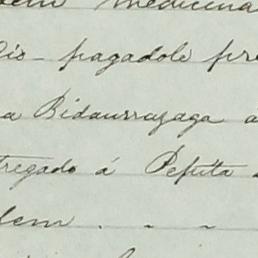 medicina
pagadole
a Bidaurrazaga a
tregado á Pepita
dem . - -